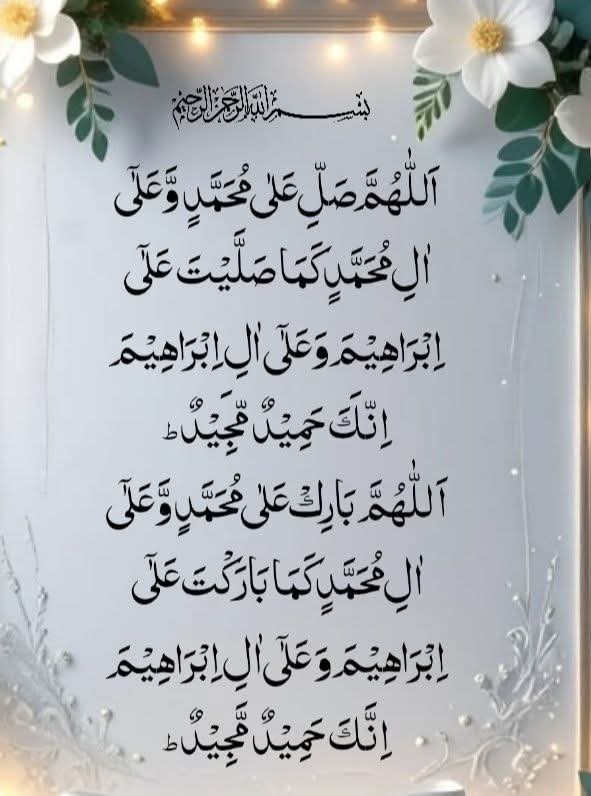 بسم الله الرحمن الرحيم
اَللّٰهُمَّ صَلِّ عَلٰى مُحَمَّدٍ وَّعَلٰٓى
اٰلِ مُحَمَّدٍ كَمَا صَلَّيْتَ عَلٰٓى
اِبْرَاهِيْمَ وَعَلٰٓى اٰلِ اِبْرَاهِيْمَ
اِنَّكَ حَمِيْدٌ مَّجِيْدٌ ؕ
اَللّٰهُمَّ بَارِكْ عَلٰى مُحَمَّدٍ وَّعَلٰٓى
اٰلِ مُحَمَّدٍ كَمَا بَارَكْتَ عَلٰٓى
اِبْرَاهِيْمَ وَعَلٰٓى اٰلِ اِبْرَاهِيْمَ
اِنَّكَ حَمِيْدٌ مَّجِيْدٌ ؕ